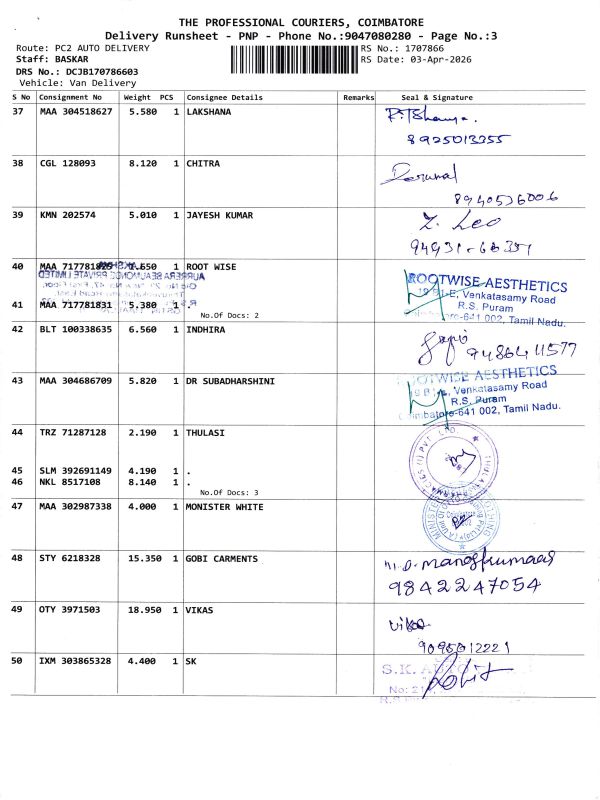 THE PROFESSIONAL COURIERS, COIMBATORE
Delivery Runsheet - PNP - Phone No.:9047080280 - Page No.:3
Route: PC2 AUTO DELIVERY
RS No.: 1707866
Staff: BASKAR
RS Date: 03-Apr-2026
DRS No.: DCJB170786603
Vehicle: Van Delivery
S No Consignment No Weight PCS Consignee Details Remarks Seal & Signature
37 MAA 304518627 5.580 1 LAKSHANA
8925013355
38 CGL 128093 8.120 1 CHITRA
8940536006
39 KMN 202574 5.010 1 JAYESH KUMAR
Z. Leo
40 MAA 1 ROOT WISE
ROOTWISE-AESTHETICS
Venkatasamy Road
R.S. Puram
641 002, Tamil Nadu.
41 MAA 717781831 5.380 1 .
No.Of Docs: 2
42 BLT 100338635 6.560 1 INDHIRA
43 MAA 304686709 5.820 1 DR SUBADHARSHINI
ROOTWISE AESTHETICS
Venkatasamy Road
R.S. Puram
641 002, Tamil Nadu.
44 TRZ 71287128 2.190 1 THULASI
45 SLM 392691149 4.190 1 .
46 NKL 8517108 8.140 1 .
No.Of Docs: 3
47 MAA 302987338 4.000 1 MONISTER WHITE
48 STY 6218328 15.350 1 GOBI CARMENTS
9842247054
49 OTY 3971503 18.950 1 VIKAS
9095012221
50 IXM 303865328 4.400 1 SK
S.K.